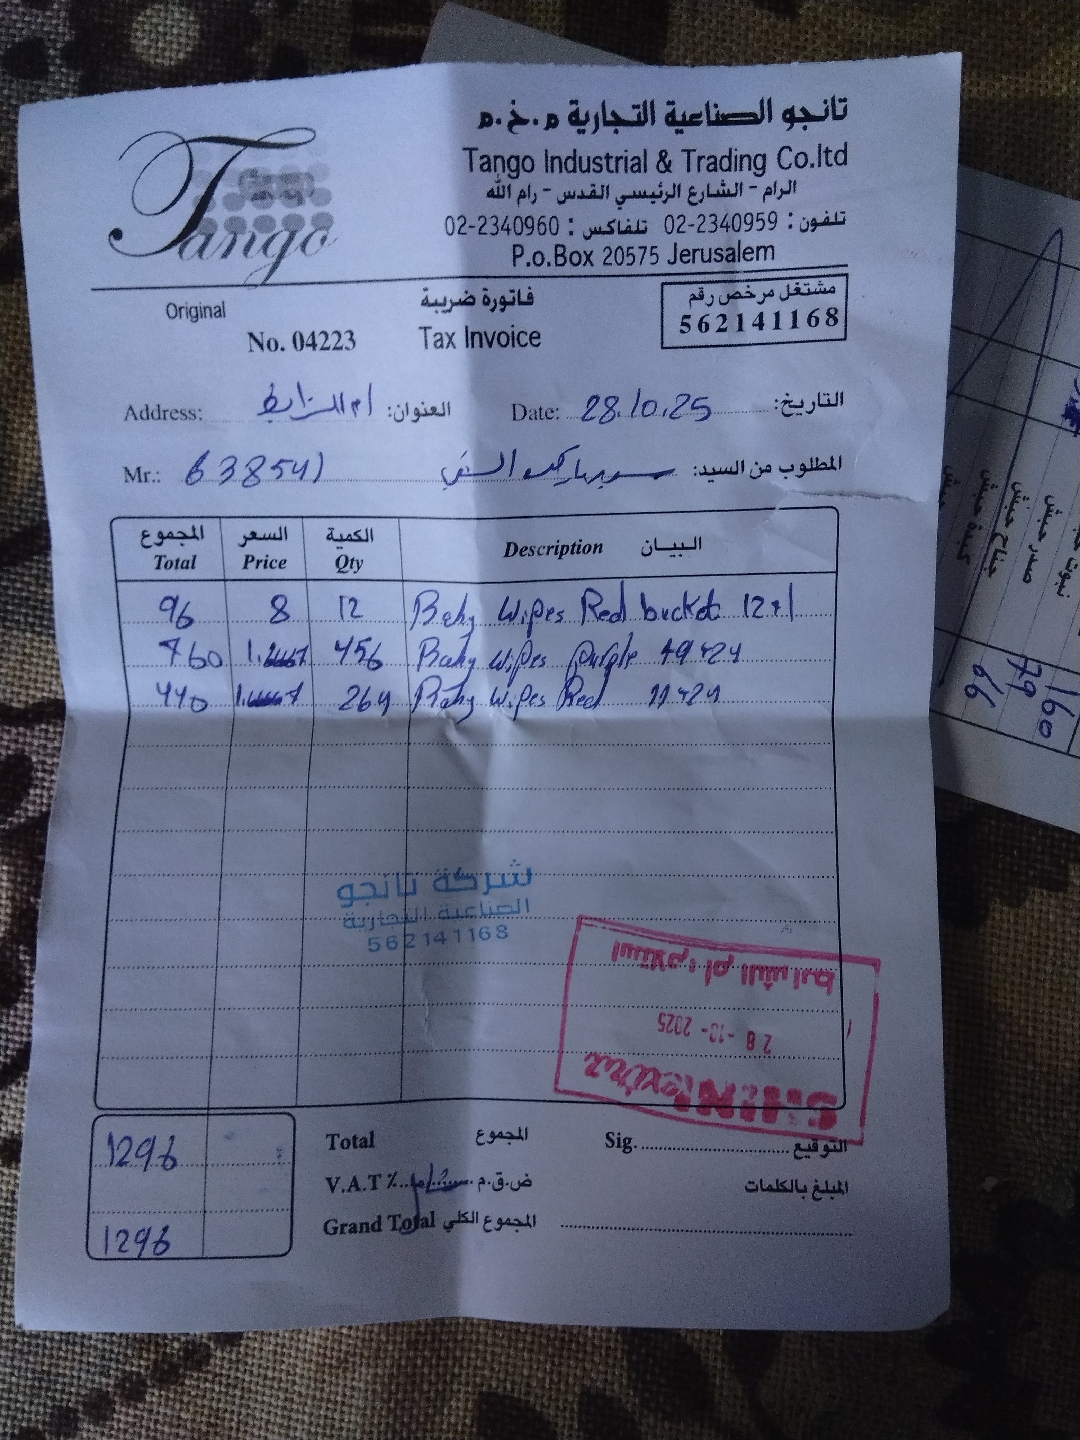 تانجو الصناعية التجارية م.خ.م
Tango Industrial & Trading Co.ltd
الرام - الشارع الرئيسي القدس - رام الله
تلفون : 02-2340959 تلفاكس : 02-2340960
P.o.Box 20575 Jerusalem
Tango
Original
فاتورة ضريبة
مشتغل مرخص رقم
562141168
No. 04223
Tax Invoice
Address: العنوان: ام الشرايط
Date: 28.10.25 التاريخ:
Mr.: 638541 المطلوب من السيد: سوبرماركت
المجموع السعر الكمية
Total Price Qty Description البيـــان
96 8 12 Baby Wipes Red bucket 12*1
760 456 Baby Wipes purple 19*24
440 264 Baby Wipes Red 11*24
شركة تانجو
الصناعية التجارية
562141168
استلام: ام الشرايط
28 -10- 2025
extra
1296 Total المجموع Sig. التوقيع
V.A.T٪ شامل ض.ق.م المبلغ بالكلمات
1296 Grand Total المجموع الكلي
نبوت
صدر حبش
جناح حبش
كبدة حبش
160
79
66